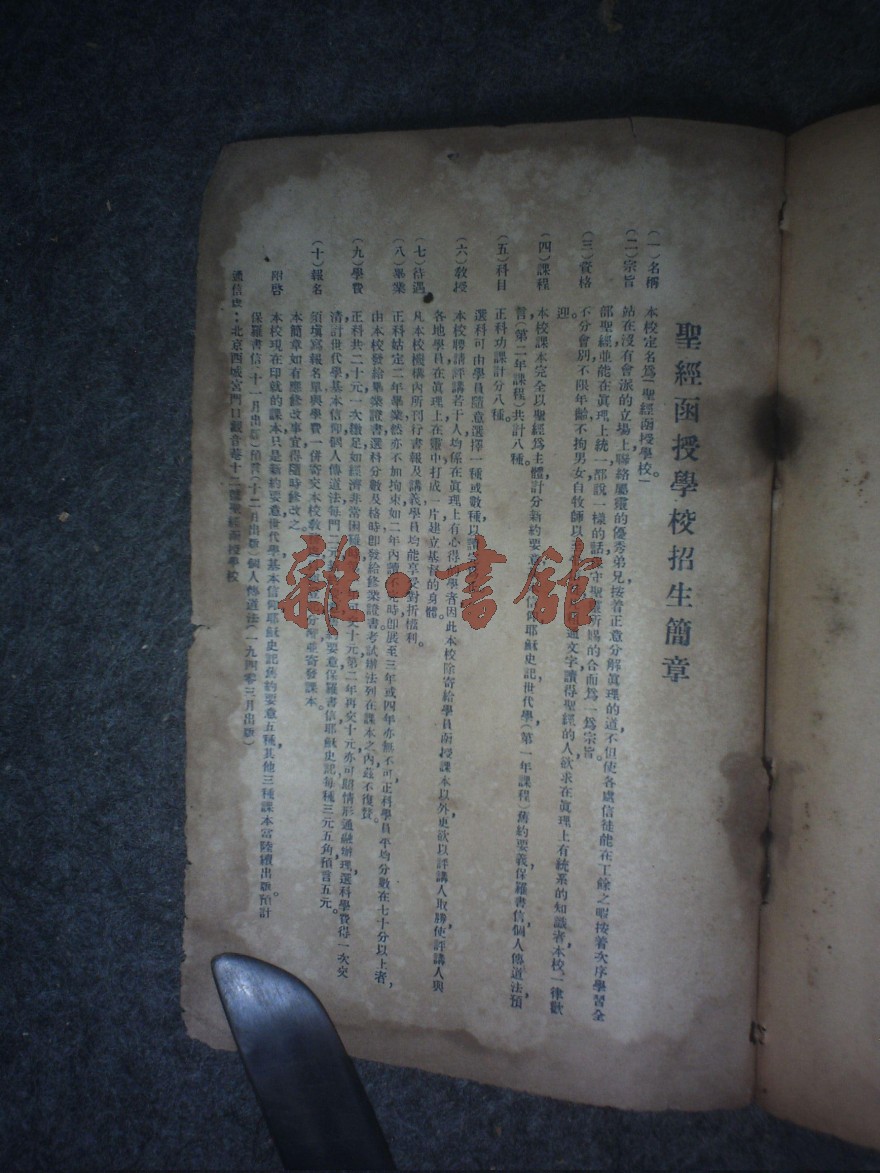 聖經函授學校招生簡章
(一)名稱 本校定名爲「聖經函授學校」
(二)宗旨 站在沒有會派的立場上聯絡屬靈的優秀弟兄按着正意分解眞理的道不但使各處信徒能在工餘之暇按着次序學習全
部聖經並能在眞理上統一都說一樣的話守聖靈所賜的合而爲一爲宗旨。
(三)資格 不分會別不限年齡不拘男女自牧師以 通文字讀得聖經的人欲求在眞理上有統系的知識者本校一律歡
迎。
(四)課程 本校課本完全以聖經爲主體計分新約要意 信仰耶穌史記世代學(第一年課程)舊約要義保羅書信個人傳道法預
言(第二年課程)共計八種。
(五)科目 正科功課計分八種。
選科可由學員隨意選擇一種或數種以讀
(六)敎授 本校聘請評講若干人均係在眞理上有心得的學者因此本校除寄給學員函授課本以外更欲以評講人取勝使評講人與
各地學員在眞理上在靈中打成一片建立基督的身體。
(七)待遇 凡本校機構內所刊行書報及講義學員均能享受對折權利。
(八)畢業 正科姑定二年畢業然亦不加拘束如二年內讀 時卽展至三年或四年亦無不可正科學員平均分數在七十分以上者,
由本校發給畢業證書選科分數及格時卽發給修業證書考試辦法列在課本之內茲不復贅。
(九)學費 正科共二十元一次繳足如經濟非常困難 交十元第二年再交十元亦可照情形通融辦理選科學費得一次交
清計世代學基本信仰個人傳道法每門三元 要意保羅書信耶穌史記每種三元五角預言五元。
(十)報名 須塡寫報名單與學費一併寄交本校敎 分所並寄發課本。
本簡章如有應修改事宜得隨時修改之。
附啓 本校現在印就的課本只是新約要意世代學基本信仰耶穌史記舊約要意五種其他三種課本當陸續出版預計
保羅書信(十一月出版)預言(十二月出版)個人傳道法(一九四零三月出版)
通信處:北京西城宮門口觀音菴十二號聖經函授學校
雜·書館